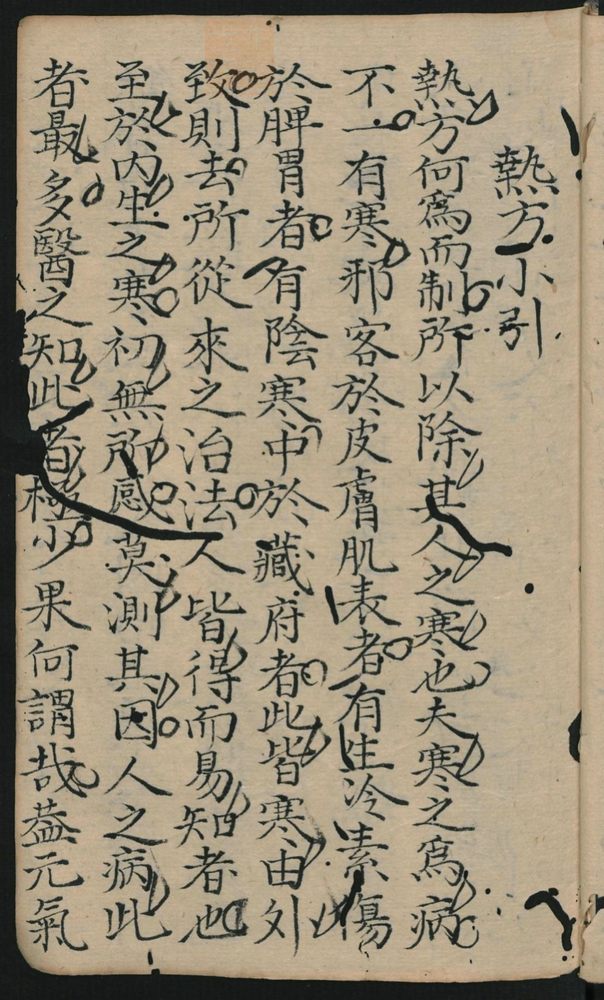 熱方小引
熱方何爲而制所以除其人之寒也夫寒之爲病
不一有寒邪客於皮膚肌表者有生冷素傷
於脾胃者有陰寒中於藏府者此皆寒由外
致則去所從來之治法人皆得而易知者也
至於內生之寒初無所感莫測其因人之病此
者最多醫之知此者極少果何謂哉葢元氣